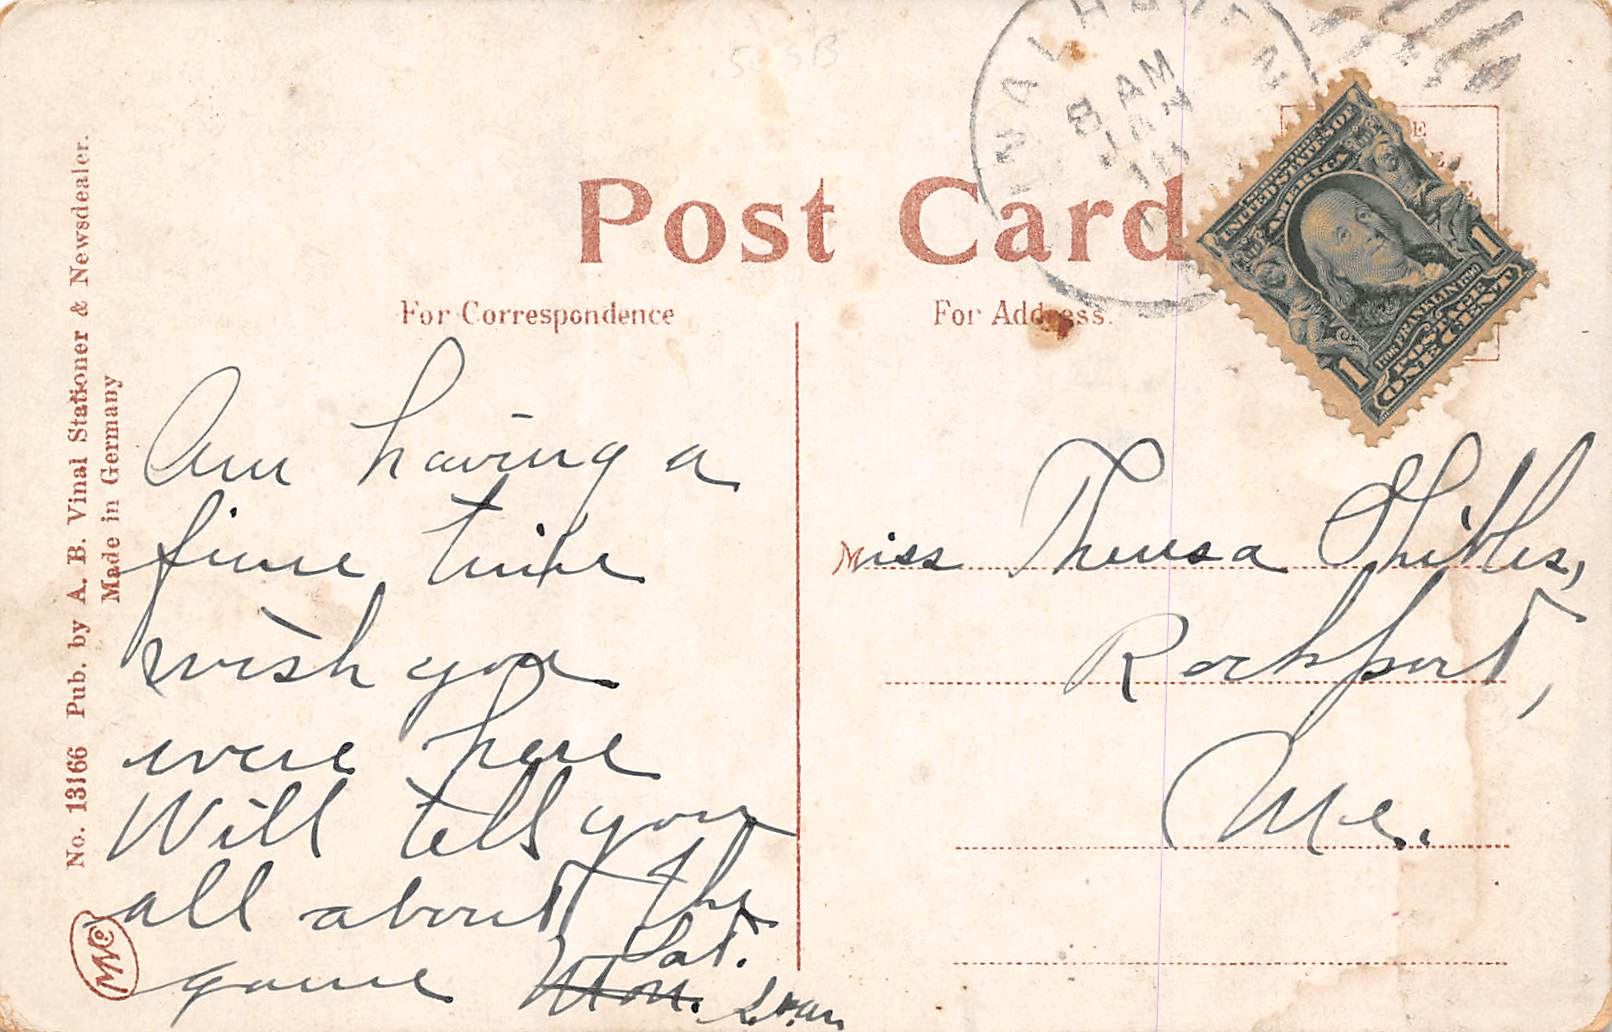 Post Card
For Correspondence
For Address.
No. 13166 Pub. by A. B. Vinal Stationer & Newsdealer.
Made in Germany
Am having a
fine time
wish you
were here
Will tell you
all about the
game Mon. Sat.
Miss Theresa Shibles,
Rockport,
Me.
VINALHAVEN
8 AM
JAN
UNITED STATES OF
AMERICA
1706 FRANKLIN 1790
POSTAGE
1 ONE CENT 1